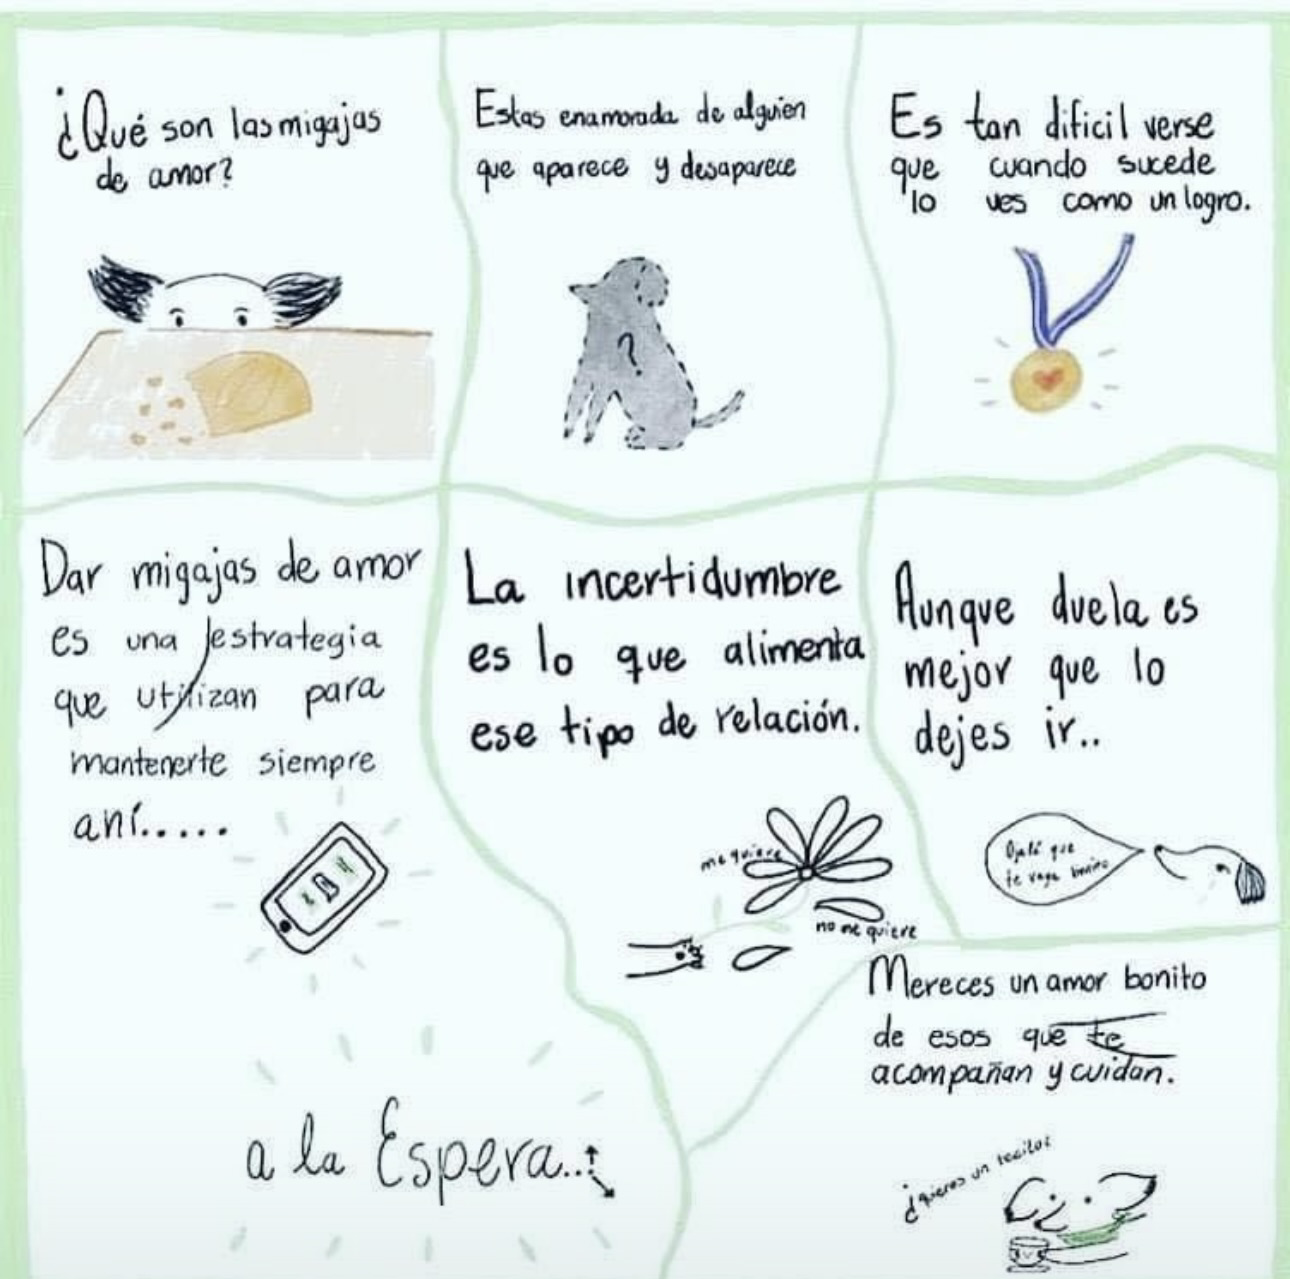 ¿Qué son las migajas
de amor?
Estas enamorada de alguien
que aparece y desaparece
?
Es tan dificil verse
que cuando sucede
lo ves como un logro.
Dar migajas de amor
es una estrategia
que utilizan para
mantenerte siempre
ahí.....
a la Espera...
La incertidumbre
es lo que alimenta
ese tipo de relación.
me quiere
no me quiere
Aunque duela es
mejor que lo
dejes ir..
Ojalá que
te vaya bonito
Mereces un amor bonito
de esos que te
acompañan y cuidan.
¿quieres un tecito?